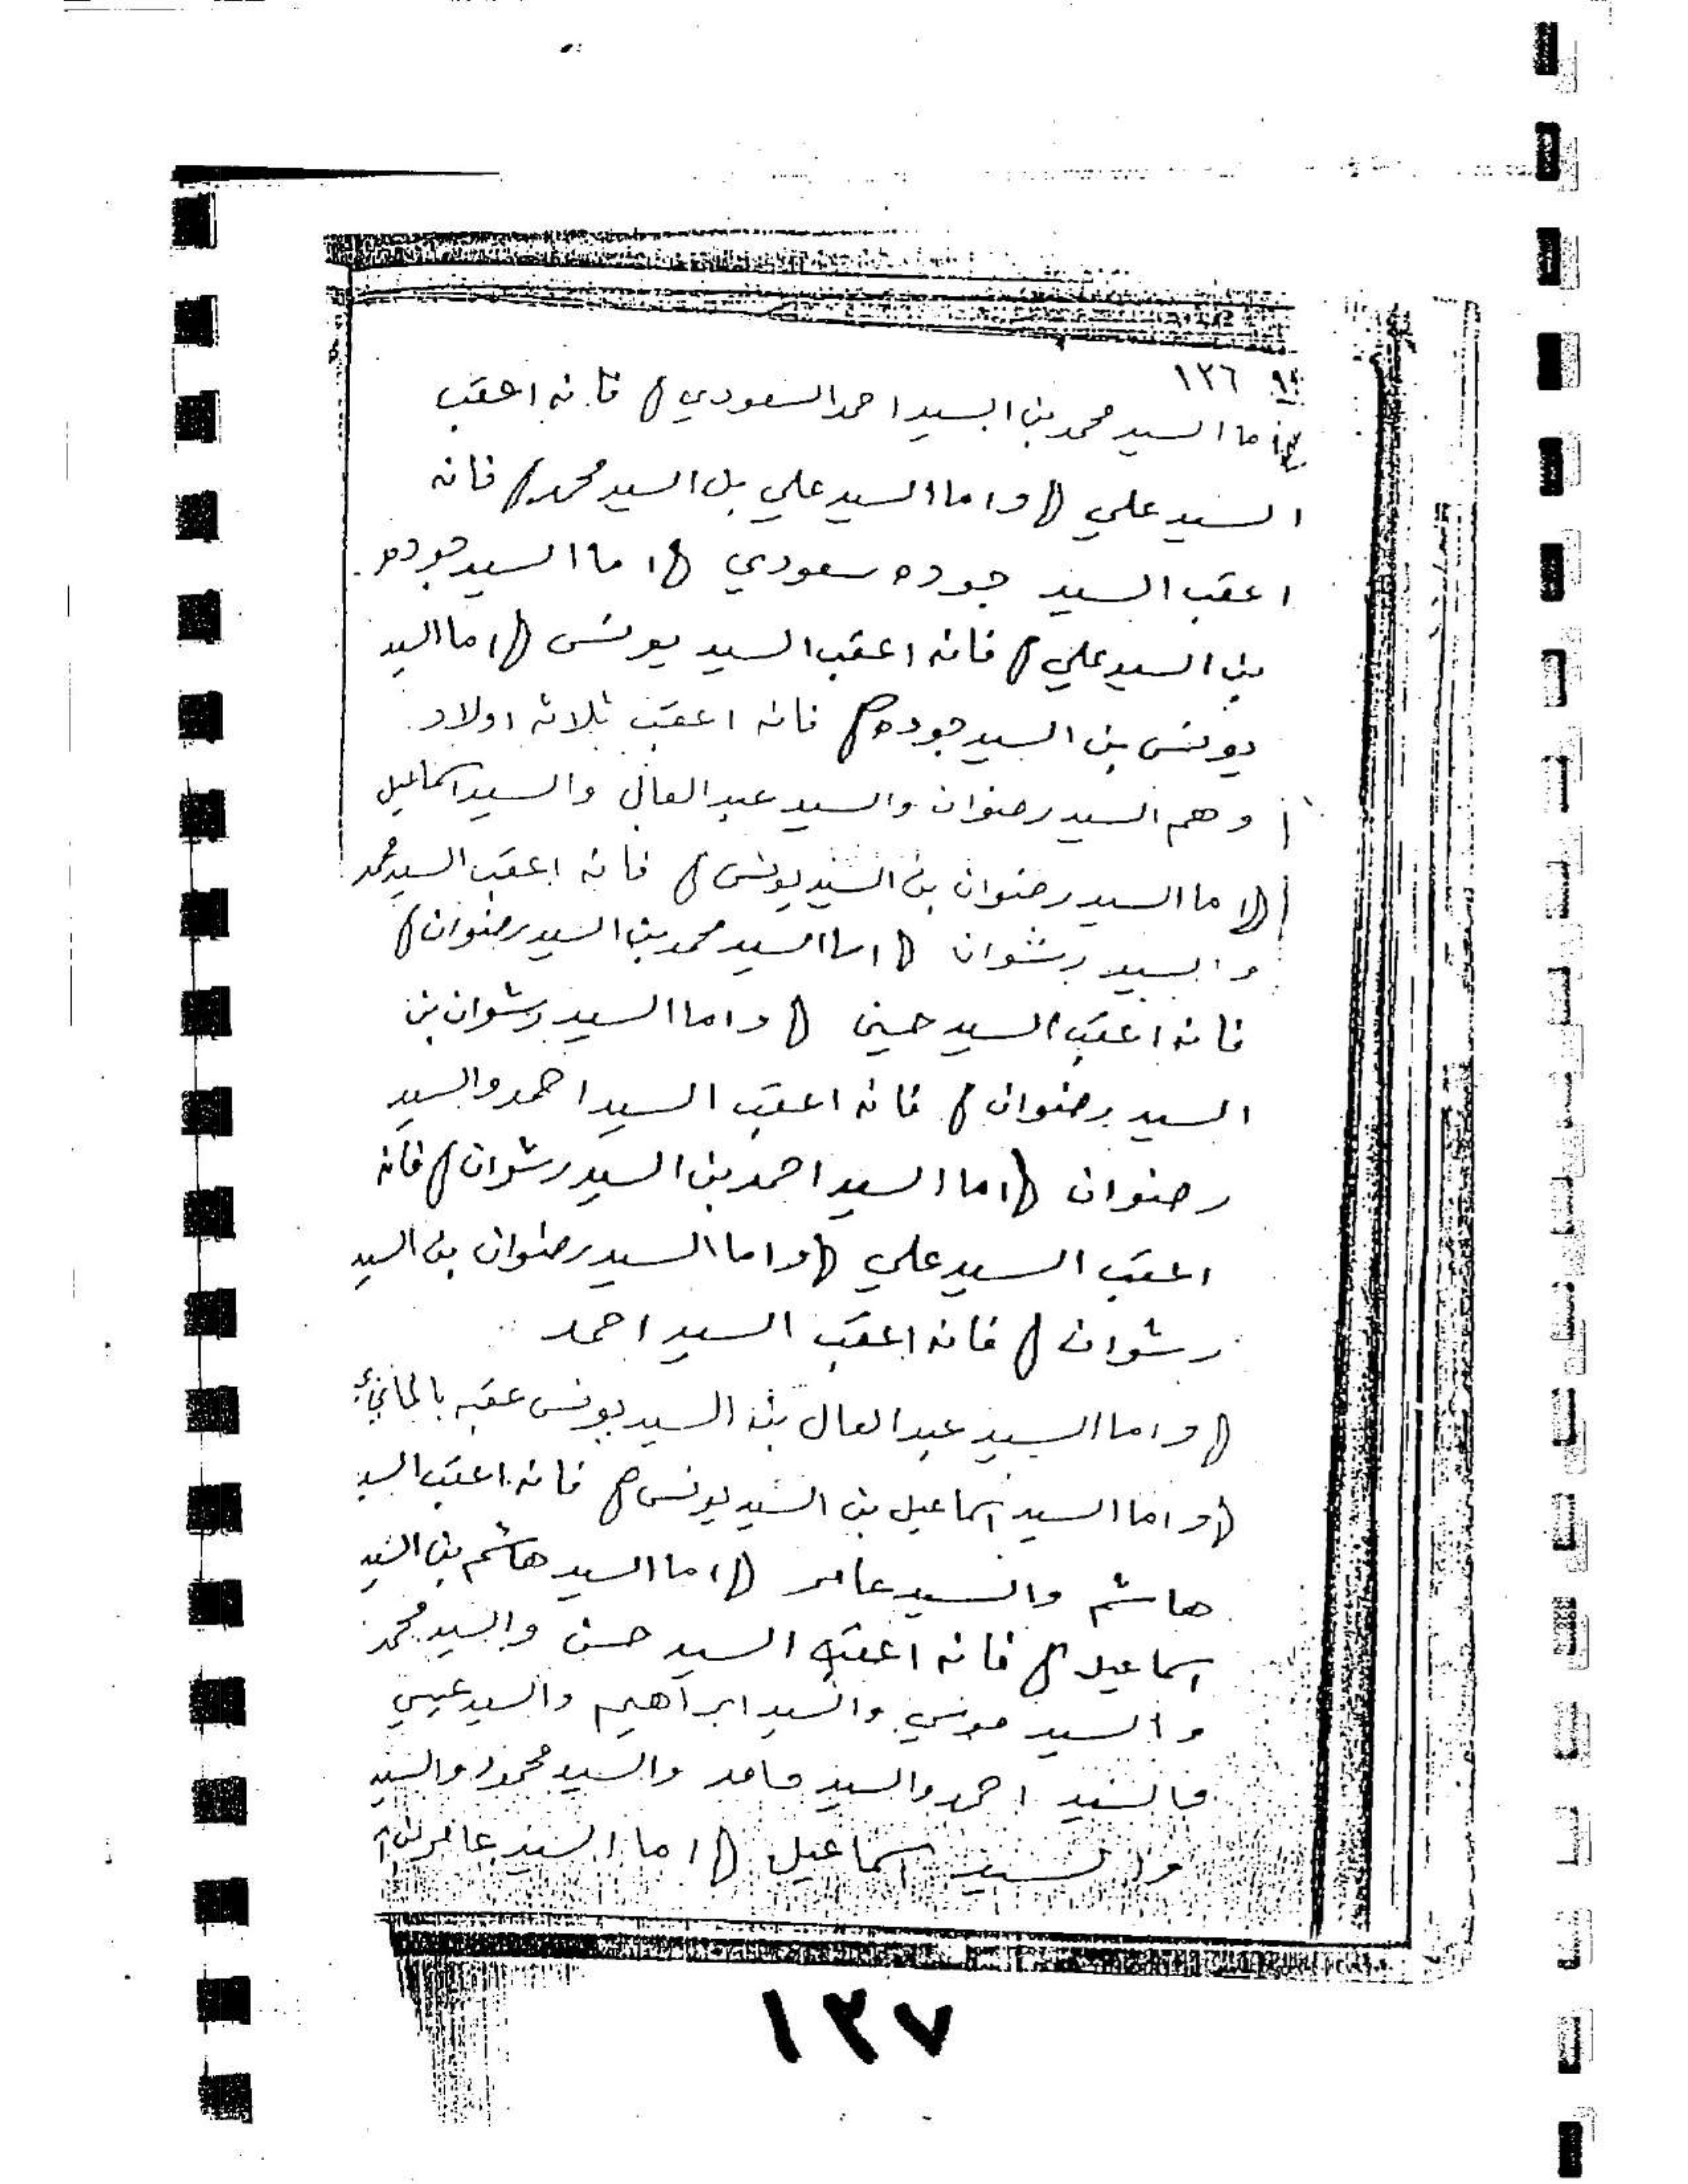 ١٢٦
اما السيد محمد بن السيد احمد السعودي ) فانه اعقب
السيد علي ( واما السيد علي بن السيد محمد ) فانه
اعقب السيد جوده سعودي ( اما السيد جوده
بن السيد علي ) فانه اعقب السيد يونس ( اما السيد
يونس بن السيد جوده ) فانه اعقب ثلاثه اولاد
وهم السيد رضوان والسيد عبد العال والسيد اسماعيل
( اما السيد رضوان بن السيد يونس ) فانه اعقب السيد محمد
والسيد رشوان ( اما السيد محمد بن السيد رضوان )
فانه اعقب السيد حسين ( واما السيد رشوان بن
السيد رضوان ) فانه اعقب السيد احمد والسيد
رضوان ( اما السيد احمد بن السيد رشوان ) فانه
اعقب السيد علي ( واما السيد رضوان بن السيد
رشوان ) فانه اعقب السيد احمد
( واما السيد عبد العال بن السيد يونس عقبه
( واما السيد اسماعيل بن السيد يونس ) فانه اعقب السيد
هاشم والسيد عامر ( اما السيد هاشم بن السيد
اسماعيل ) فانه اعقب السيد حسن والسيد محمد
والسيد موسي والسيد ابراهيم والسيد عيسي
والسيد احمد والسيد حامد والسيد محمود والسيد
والسيد اسماعيل ( اما السيد عامر بن
١٢٧